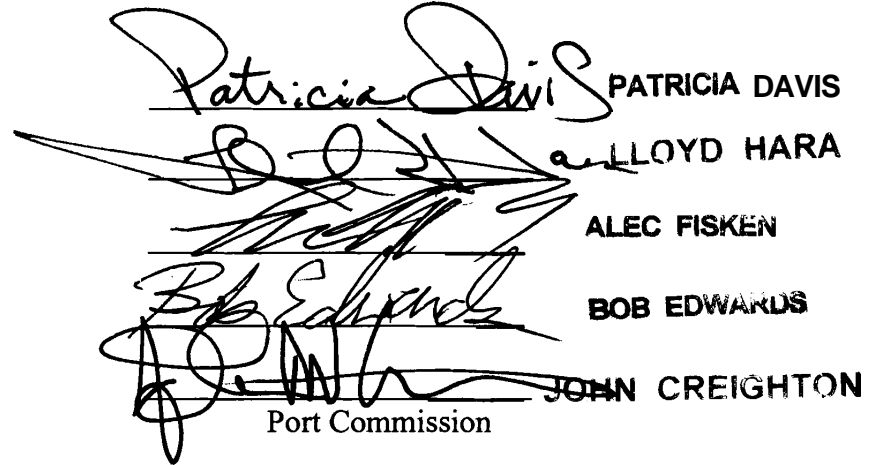 Patricia Davis PATRICIA DAVIS
LLOYD HARA
ALEC FISKEN
Bob Edwards BOB EDWARDS
JOHN CREIGHTON
Port Commission